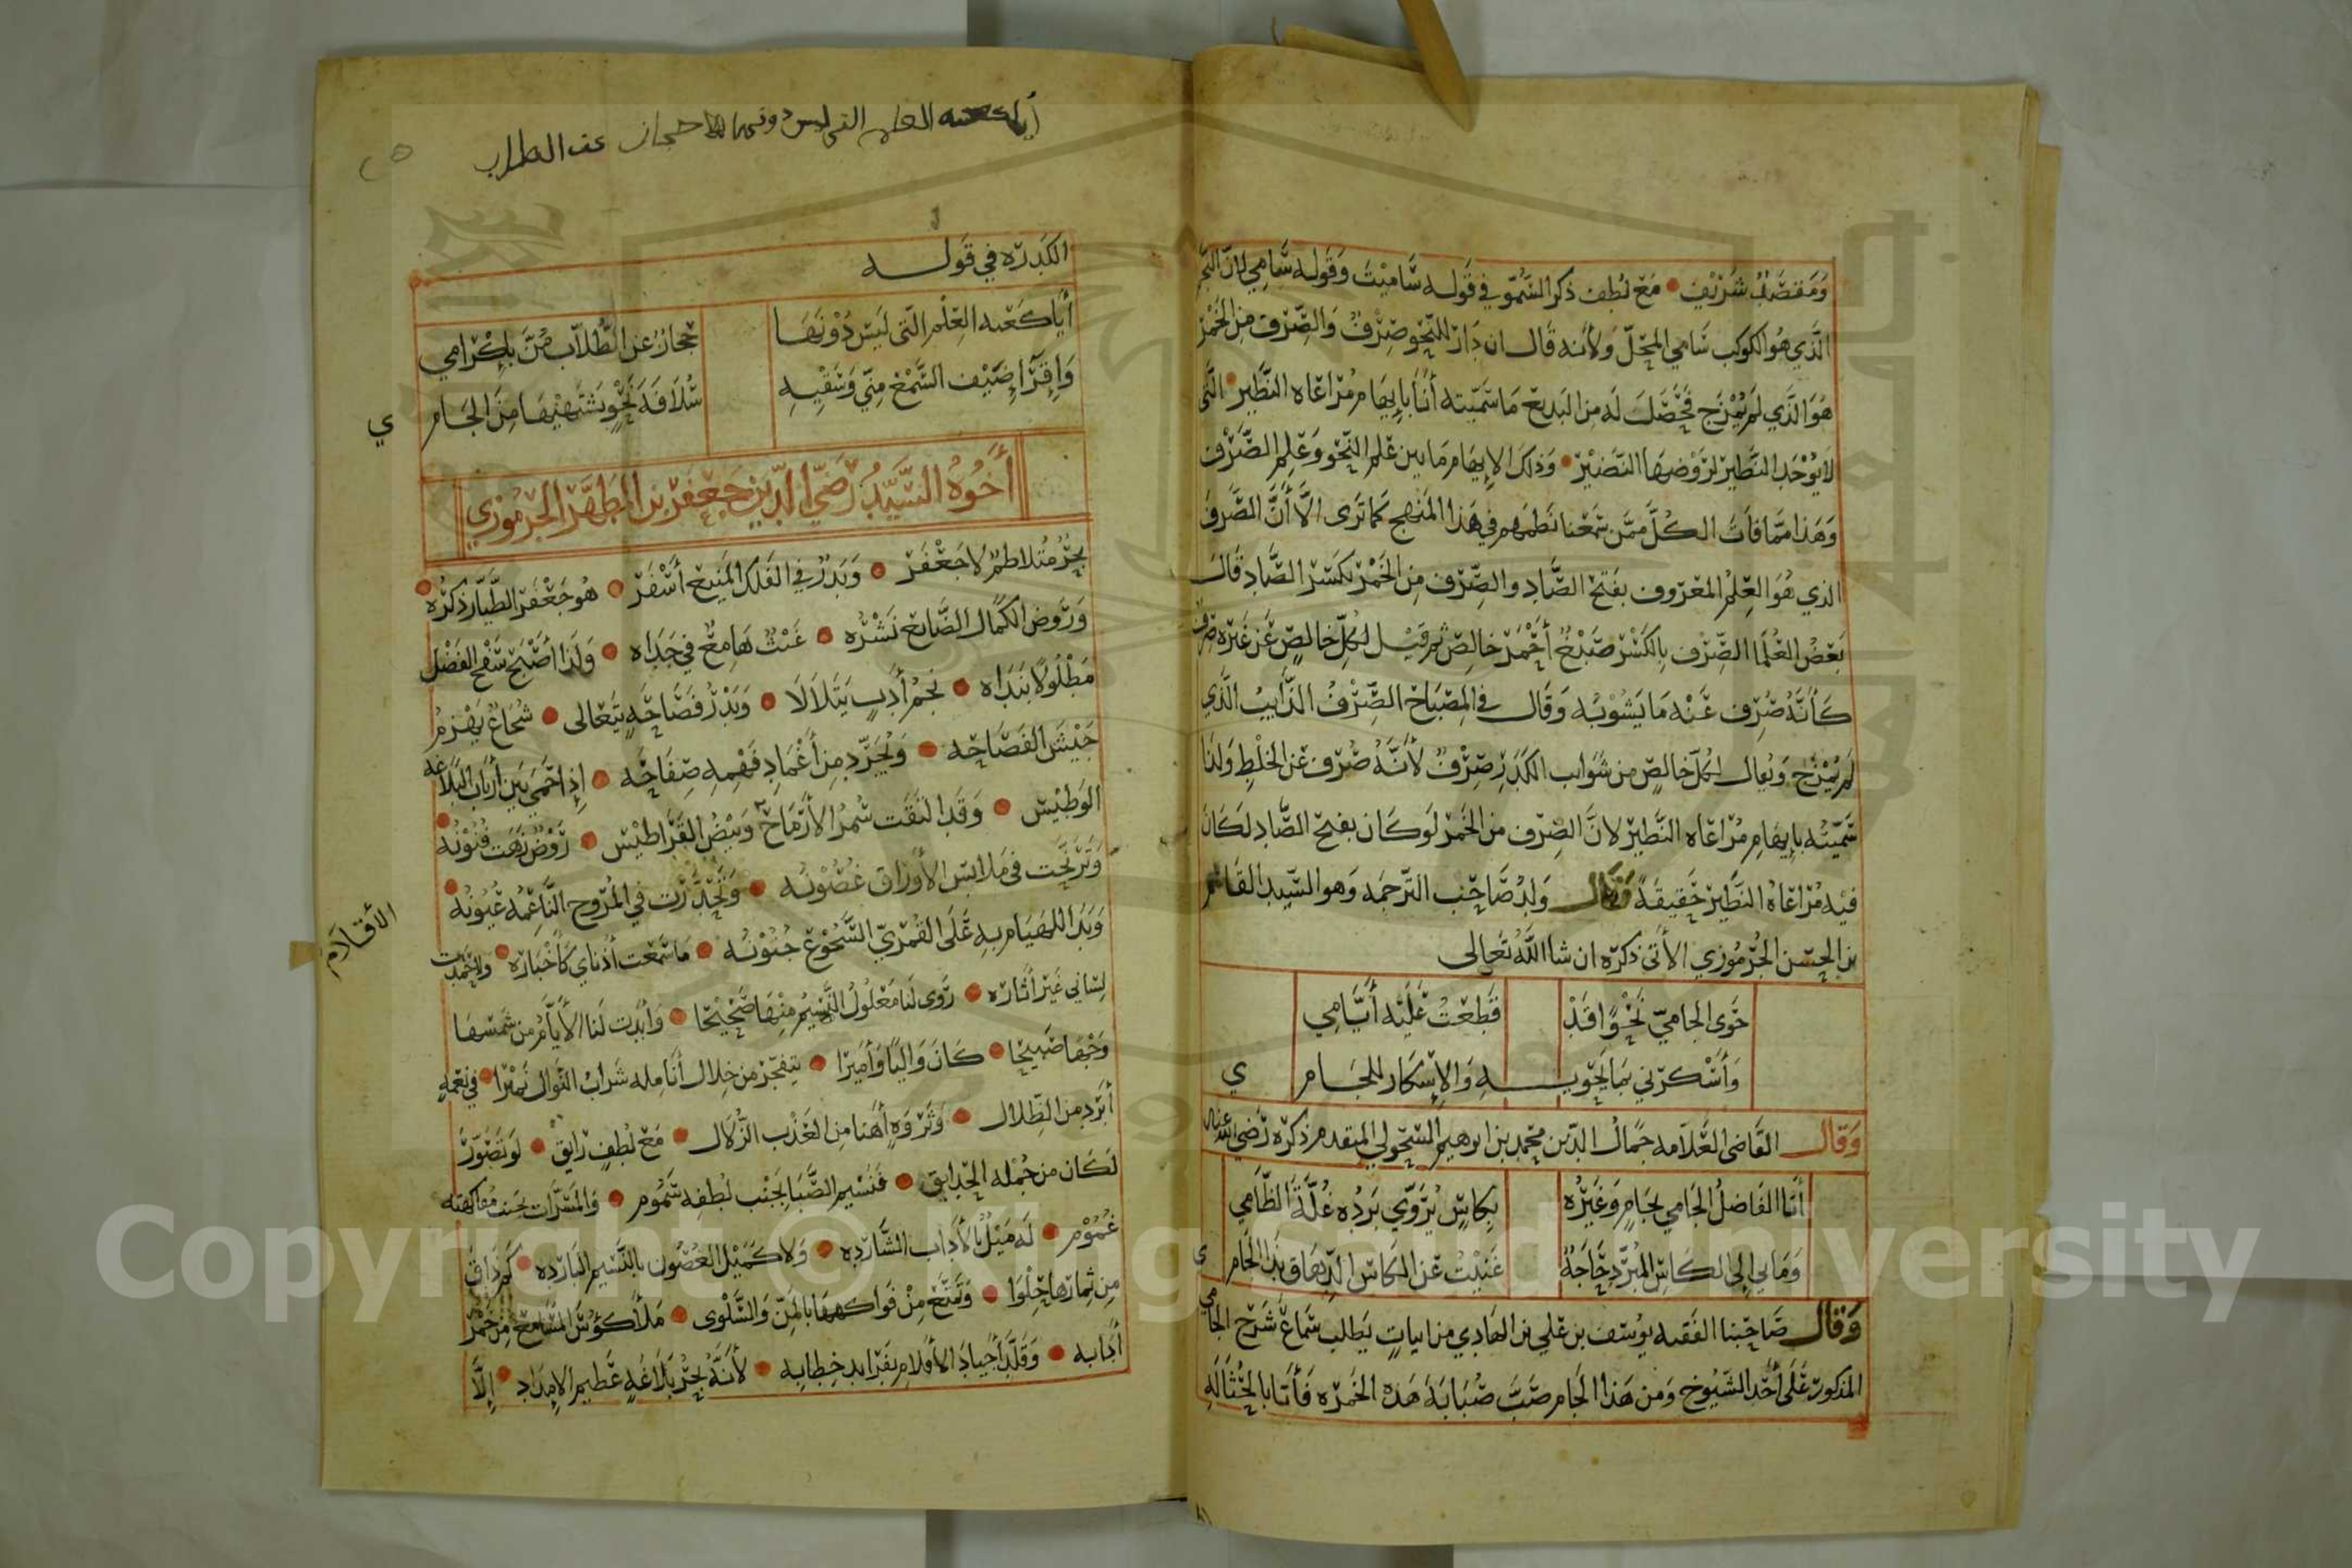 ومقصد شريف • مع لطف ذكر السمو في قوله ساميت وقوله سامي لان النجم
الذي هو الكوكب سامي المحل ولأنه قال ان دار للنحو صرف والصرف من الخمر
هو الذي لم يمزج فحصل له من البديع ما سميته أنا بإيهام مراعاه النظير • التي
لا يوجد النظير لروضها النضير • وذلك الإيهام ما بين علم النحو وعلم الصرف
وهذا مما فات الكل ممن سمعنا نظمهم في هذا المنهج كما ترى الا أن الصرف
الذي هو العلم المعروف بفتح الصاد والصرف من الخمر بكسر الصاد قال
بعض العلما الصرف بالكسر صبغ أحمر خالص ثم قيل لكل خالص عن غيره صرف
كأنه صرف عنه ما يشوبه وقال في المصباح الصرف الشراب الذي
لم يمزج ويقال لكل خالص من شوايب الكدر صرف لأنه صرف عن الخلط ولذا
سميته بإيهام مراعاه النظير لان الصرف من الخمر لو كان بفتح الصاد لكان
فيه مراعاة النظير حقيقة وقال ولد صاحب الترجمه وهو السيد القاسم
بن الحسن الجرموزي الأتي ذكره ان شا الله تعالى
حوى الجامي نحوا قد قطعت عليه أيامي
وأسكرني بما يحويـه والإسكار للجام
ي
وقال القاضي العلامه جمال الدين محمد بن ابرهيم السحولي المتقدم ذكره رضي الله عنه
أتا الفاضل الجامي بجام وغيره بكاس يروي برده غلة الظامي
وما بي إلى الكاس المبرد حاجة غنيت عن الكاس الدهاق بذا الجام
ي
وقال صاحبنا الفقيه يوسف بن علي بن الهادي من ابيات يطلب سماع شرح الجامي
المذكور على أحد الشيوخ ومن هذا الجام صب صبابة هذه الخمره فأتا بالحثالة
أيا كعبه العلم التي ليس دونها حجاز عن الطلاب
٢٥
الكدره في قوله
أيا كعبه العلم التي ليس دونها حجاز عن الطلاب من بإكرامي
واقرا ضيف السمع مني وسقيه سلافة نحو يشتهيها من الجام
ي
أخوه السيد رضي الدين جعفر بن المطهر الجرموزي
بحر متلاطم لا جعفر • وبدر في الفلك المنيع أسفر • هو جعفر الطيار ذكره •
وروض الكمال الضايع نشره • غيث هامع في جداه • ولذا أصبح سفح الفضل
مطلولا بنداه • نجم أدب يتلالا • وبدر فصاحه يتعالى • شجاع يهزم
جيش الفصاحه • ويجرد من أغماد فهمه صفاحه • إذا حمي بين أرباب البلاغه
الوطيس • وقد التقت سمر الأرماح وبيض القراطيس • روض زهت فنونه •
وترنحت في ملابس الأوراق غصونه • وتحدرت في المروح الناعمه عيونه •
وبدا اللهيام به على القمري السجوع جنونه • ما سمعت أذناي كأخباره • ولا حمدت
الأقلام
لساني غير أثاره • روى لنا معلول النسيم منها صحيحا • وأبدت لنا الأيام من شمسها
وجها صبيحا • كان واليا وأميرا • يتفجر من خلال أنامله شراب النوال نميرا • في نعمه
أبرد من الظلال • وثروه أهنا من العذب الزلال • مع لطف رايق • لو تصور
لكان من جمله الحدايق • فنسيم الصبا بجنب لطفه سموم • والمسرات بجنب مفاكهته
غموم • له ميل بالأداب الشارده • ولا كميل الغصون بالنسيم البارده • كم ذاق
من ثمارها حلوا • وتمتع من فواكهها بالمن والسلوى • ملأ كؤس المسامع من خمر
أدابه • وقلد أجياد الأقلام بفرايد خطابه • لأنه بحر بلاغه عظيم الإمداد • إلا
Copyright © King Saud University